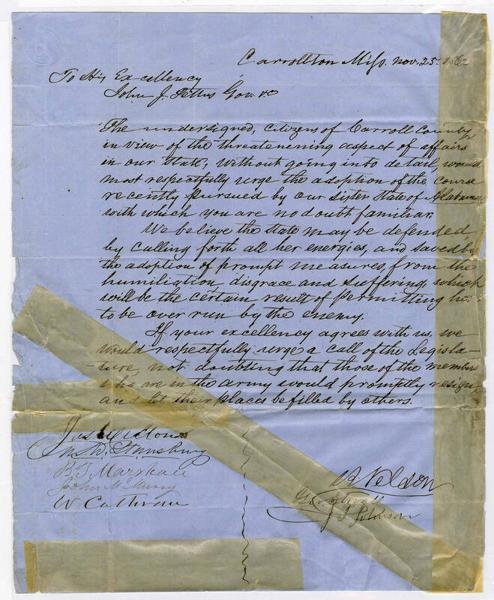 Carrollton Miss. Nov. 25th 1862
To His Excellency
John J. Pettus Gov. &c
The undersigned, citizens of Carroll County,
in view of the threatenening aspect of affairs
in our State, without going into detail, would
most respectfully urge the adoption of the course
recently pursued by our sister State of Alabama
with which you are no doubt familiar.
We believe the State may be defended
by calling forth all her energies, and saved by
the adoption of prompt measures, from the
humiliation, disgrace and suffering, which
will be the certain result of permitting her
to be over run by the enemy.
If your excellency agrees with us, we
would respectfully urge a call of the Legisla-
ture, not doubting that those of the members
who are in the army would promptly resign
and let their places be filled by others.
Stansbury
B. F. Marshall
John M.
W Cothran
Nelson